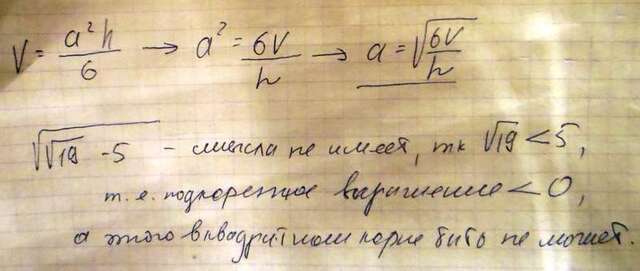 V = a²h/6 → a² = 6V/h → a = √(6V/h)
√(√19 - 5) - смысла не имеет, тк √19 < 5,
т.е. подкоренное выражение < 0,
а этого в квадратном корне быть не может.